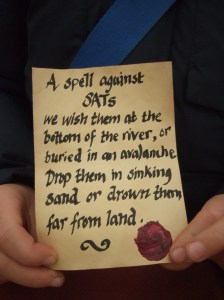 A spell against
SATs
we wish them at the
bottom of the river, or
buried in an avalanche
Drop them in sinking
sand or drown them
far from land.